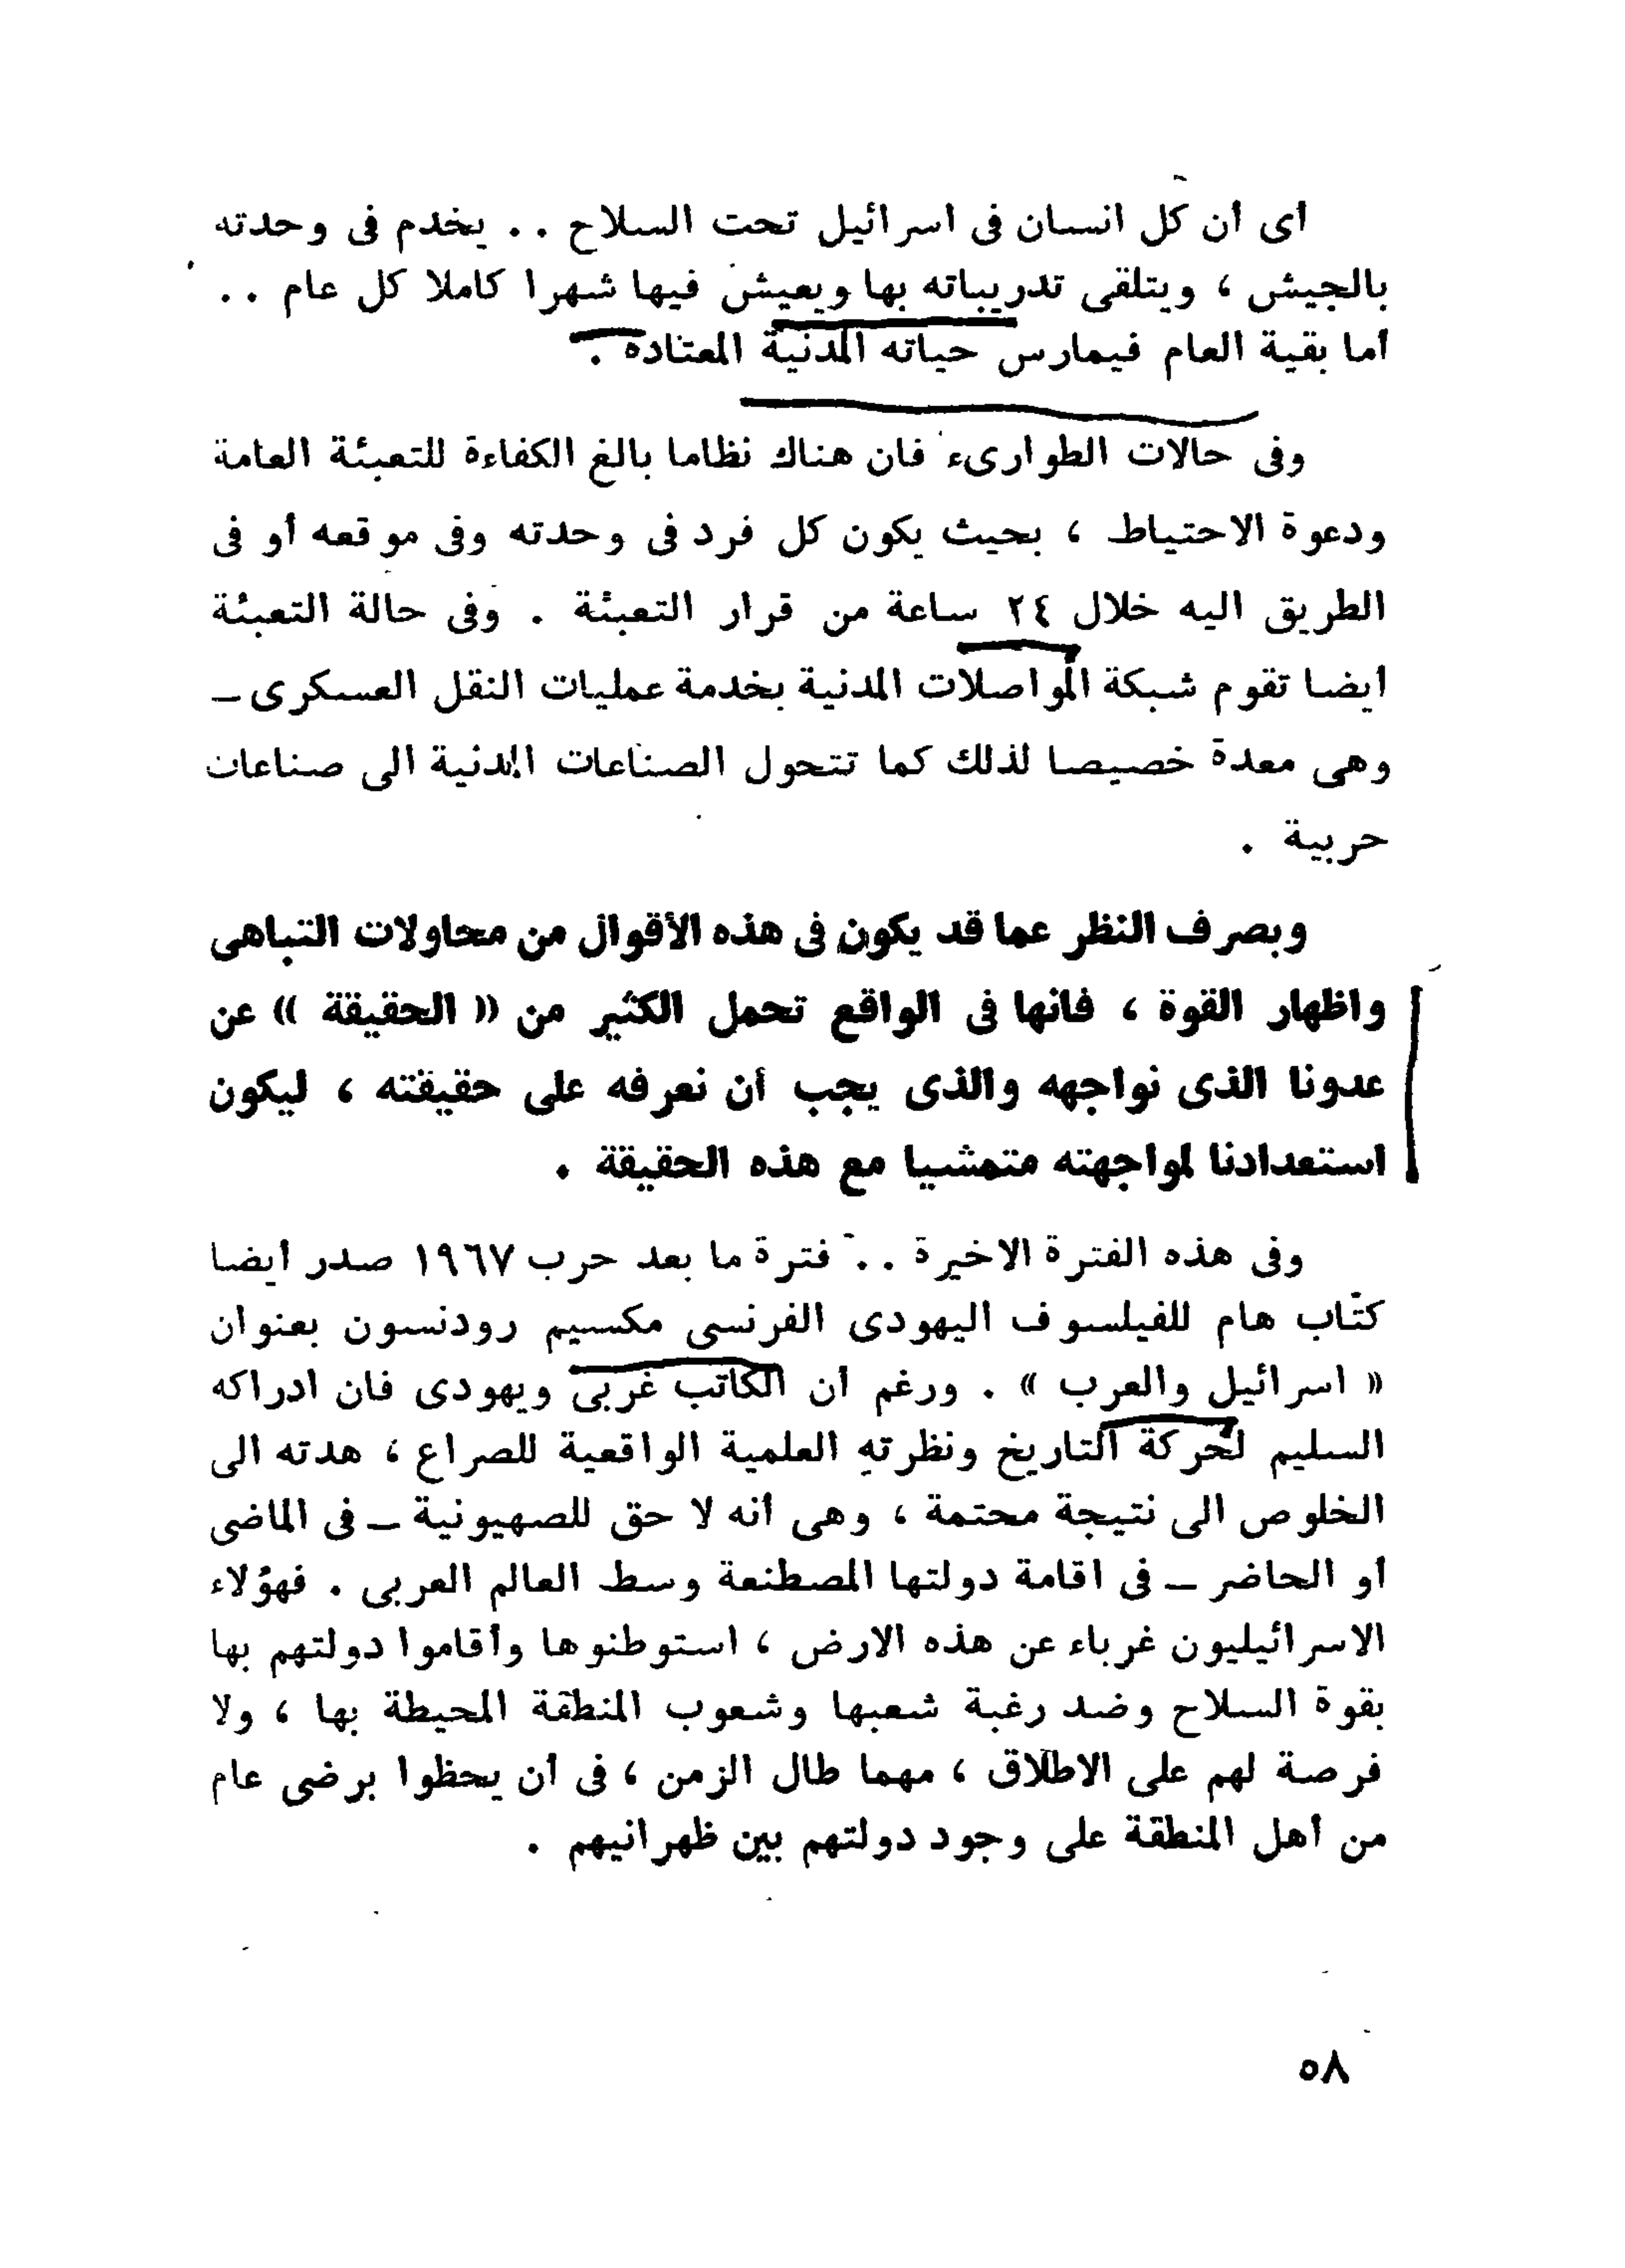 أى أن كل انسان فى اسرائيل تحت السلاح . . يخدم فى وحدته
بالجيش ، ويتلقى تدريباته بها ويعيش فيها شهرا كاملا كل عام . .
أما بقية العام فيمارس حياته المدنية المعتادة .
وفى حالات الطوارىء فان هناك نظاما بالغ الكفاءة للتعبئة العامة
ودعوة الاحتياط ، بحيث يكون كل فرد فى وحدته وفى موقعه أو فى
الطريق اليه خلال ٢٤ ساعة من قرار التعبئة . وفى حالة التعبئة
ايضا تقوم شبكة المواصلات المدنية بخدمة عمليات النقل العسكرى ــ
وهى معدة خصيصا لذلك كما تتحول الصناعات المدنية الى صناعات
حربية .
وبصرف النظر عما قد يكون فى هذه الأقوال من محاولات التباهى
واظهار القوة ، فانها فى الواقع تحمل الكثير من « الحقيقة » عن
عدونا الذى نواجهه والذى يجب أن نعرفه على حقيقته ، ليكون
استعدادنا لمواجهته متمشيا مع هذه الحقيقة .
وفى هذه الفترة الاخيرة . . فترة ما بعد حرب ١٩٦٧ صدر أيضا
كتاب هام للفيلسوف اليهودى الفرنسى مكسيم رودنسون بعنوان
« اسرائيل والعرب » . ورغم أن الكاتب غربى ويهودى فان ادراكه
السليم لحركة التاريخ ونظرته العلمية الواقعية للصراع ، هدته الى
الخلوص الى نتيجة محتمة ، وهى أنه لا حق للصهيونية ــ فى الماضى
أو الحاضر ــ فى اقامة دولتها المصطنعة وسط العالم العربى . فهؤلاء
الاسرائيليون غرباء عن هذه الارض ، استوطنوها وأقاموا دولتهم بها
بقوة السلاح وضد رغبة شعبها وشعوب المنطقة المحيطة بها ، ولا
فرصة لهم على الاطلاق ، مهما طال الزمن ، فى أن يحظوا برضى عام
من أهل المنطقة على وجود دولتهم بين ظهرانيهم .
٥٨